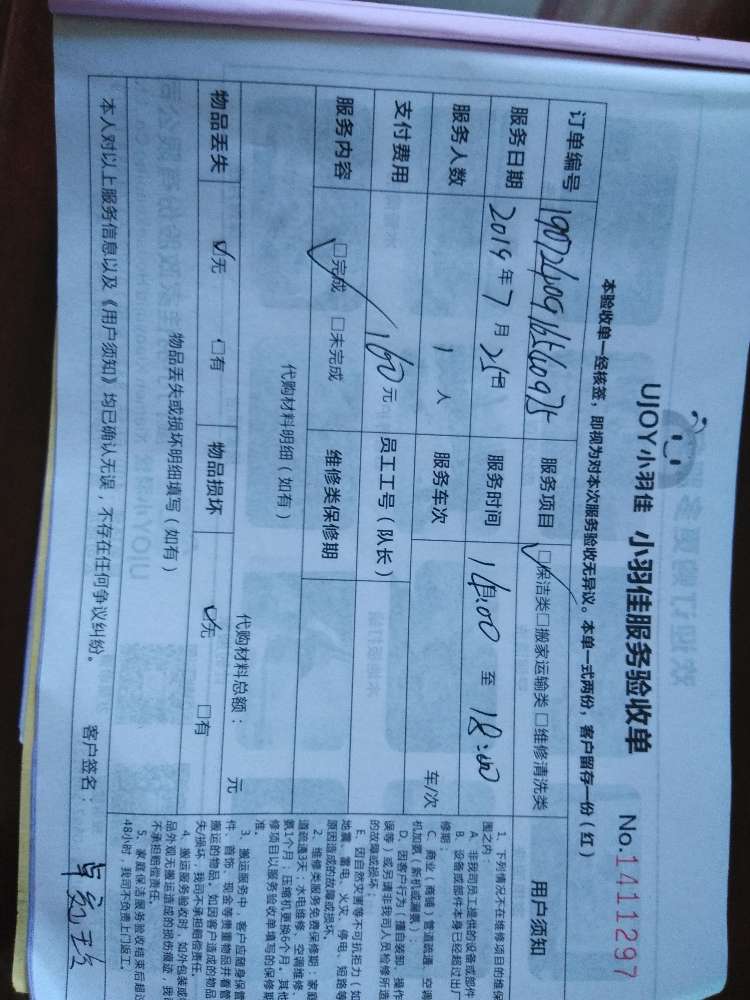 UJOY小羽佳 小羽佳服务验收单 No.1411297
本验收单一经核签，即视为对本次服务验收无异议。本单一式两份，客户留存一份（红）
订单编号 服务项目 ☑保洁类□搬家运输类□维修清洗类
服务日期 2019年7月25日 服务时间 14:00 至 18:00
服务人数 1 人 服务车次 车/次
支付费用 160元 员工工号（队长）
服务内容 ☑完成 □未完成 维修类保修期
代购材料明细（如有） 代购材料总额： 元
物品丢失 ☑无 □有 物品损坏 ☑无 □有
物品丢失或损坏明细填写（如有）
本人对以上服务信息以及《用户须知》均已确认无误，不存在任何争议纠纷。 客户签名：
用户须知
1、下列情况不在维修项目的维保
围之内：
A、非我司员工提供的设备或部件
B、设备或部件本身已经超过出厂
修期；
C、商业（商铺）管道疏通、空调
机加氨（新机或漏氨）；
D、因客户行为（擅自装卸、操作
误等）或另请非我司人员检修所造
的故障或损坏；
E、因自然灾害等不可抗拒力（如
地震、雷电、火灾、停电、短路等
原因造成的故障或损坏。
2、维修类服务免费保修期：家庭
道疏通3天、水电维修、空调维修
氨1个月，压缩机更换6个月。其他
修项目以服务验收单填写的保修期
准。
3、搬运服务中，客户应随身保管
件、首饰、现金等贵重物品并看管
搬运的物品。如因客户造成的物品
失/损坏，我司不承担赔偿责任。
4、搬运服务验收时，如外包装或
品外观无搬运造成的损伤痕迹，我
不承担赔偿责任。
5、家庭保洁服务验收结束后超过
48小时，我司不负责上门返工。